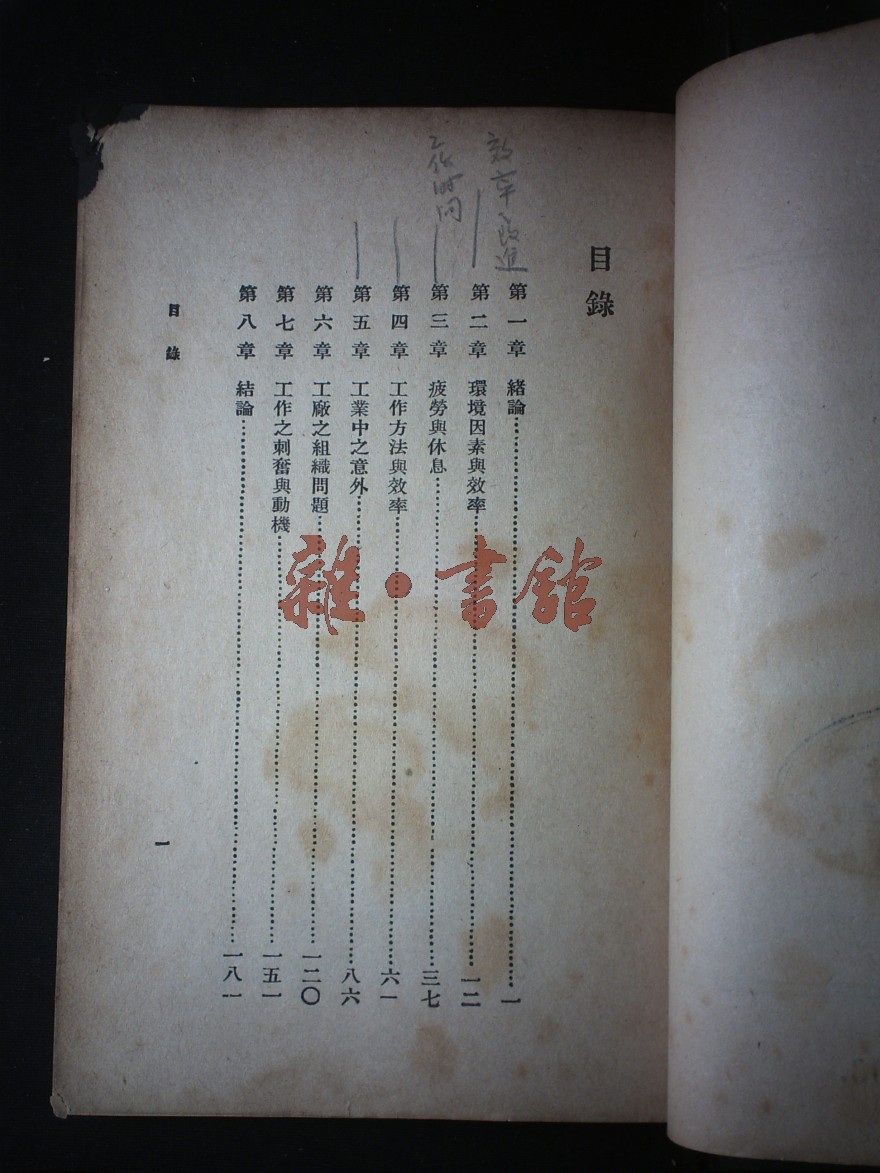 目錄
效率改進
工作时间
第一章 緒論 一
第二章 環境因素與效率 一二
第三章 疲勞與休息 三七
第四章 工作方法與效率 六一
第五章 工業中之意外 八六
第六章 工廠之組織問題 一二〇
第七章 工作之刺奮與動機 一五一
第八章 結論 一八一
目錄
一
雜·書舘